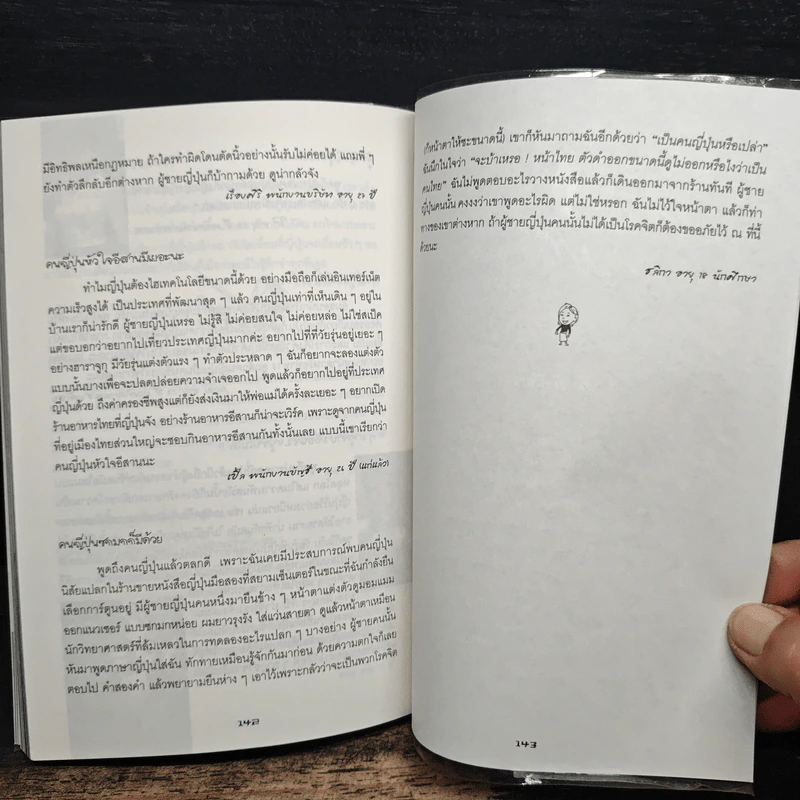 มีอิทธิพลเหนือกฎหมาย ถ้าใครทำผิดโดนตัดนิ้วอย่างนั้นรับไม่ค่อยได้ แถมพี่ ๆ
ยังทำตัวลึกลับอีกต่างหาก ผู้ชายญี่ปุ่นก็บ้ากามด้วย ดูน่ากลัวจัง
เรืองศิริ พนักงานบริษัท อายุ ๒๓ ปี
คนญี่ปุ่นหัวใจอีสานมีเยอะนะ
ทำไมญี่ปุ่นต้องไฮเทคโนโลยีขนาดนี้ด้วย อย่างมือถือก็เล่นอินเทอร์เน็ต
ความเร็วสูงได้ เป็นประเทศที่พัฒนาสุด ๆ แล้ว คนญี่ปุ่นเท่าที่เห็นเดิน ๆ อยู่ใน
บ้านเราก็น่ารักดี ผู้ชายญี่ปุ่นเหรอ ไม่รู้สิ ไม่ค่อยสนใจ ไม่ค่อยหล่อ ไม่ใช่สเป็ค
แต่ขอบอกว่าอยากไปเที่ยวประเทศญี่ปุ่นมากค่ะ อยากไปที่ที่วัยรุ่นอยู่เยอะ ๆ
อย่างฮาราจูกุ มีวัยรุ่นแต่งตัวแรง ๆ ทำตัวประหลาด ๆ ฉันก็อยากจะลองแต่งตัว
แบบนั้นบางเพื่อจะปลดปล่อยความจำเจออกไป พูดแล้วก็อยากไปอยู่ที่ประเทศ
ญี่ปุ่นด้วย ถึงค่าครองชีพสูงแต่ก็ยังส่งเงินมาให้พ่อแม่ได้ครั้งละเยอะ ๆ อยากเปิด
ร้านอาหารไทยที่ญี่ปุ่นจัง อย่างร้านอาหารอีสานก็น่าจะเวิร์ค เพราะดูจากคนญี่ปุ่น
ที่อยู่เมืองไทยส่วนใหญ่จะชอบกินอาหารอีสานกันทั้งนั้นเลย แบบนี้เขาเรียกว่า
คนญี่ปุ่นหัวใจอีสานนะ
เปิ้ล พนักงานบัญชี อายุ ๒๖ ปี (แก่แล้ว)
คนญี่ปุ่นซกมกก็มีด้วย
พูดถึงคนญี่ปุ่นแล้วตลกดี เพราะฉันเคยมีประสบการณ์พบคนญี่ปุ่น
นิสัยแปลกในร้านขายหนังสือญี่ปุ่นมือสองที่สยามเซ็นเตอร์ในขณะที่ฉันกำลังยืน
เลือกการ์ตูนอยู่ มีผู้ชายญี่ปุ่นคนหนึ่งมายืนข้าง ๆ หน้าตาแต่งตัวดูมอมแมม
ออกแนวเซอร์ แบบซกมกหน่อย ผมยาวรุงรัง ใส่แว่นสายตา ดูแล้วหน้าตาเหมือน
นักวิทยาศาสตร์ที่ล้มเหลวในการทดลองอะไรแปลก ๆ บางอย่าง ผู้ชายคนนั้น
หันมาพูดภาษาญี่ปุ่นใส่ฉัน ทักทายเหมือนรู้จักกันมาก่อน ด้วยความตกใจก็เลย
ตอบไป คำสองคำ แล้วพยายามยืนห่าง ๆ เอาไว้เพราะกลัวว่าจะเป็นพวกโรคจิต
142
(ก็หน้าตาให้ซะขนาดนี้) เขาก็หันมาถามฉันอีกด้วยว่า “เป็นคนญี่ปุ่นหรือเปล่า”
ฉันนึกในใจว่า “จะบ้าเหรอ ! หน้าไทย ตัวดำออกขนาดนี้ดูไม่ออกหรือไงว่าเป็น
คนไทย” ฉันไม่พูดตอบอะไรวางหนังสือแล้วก็เดินออกมาจากร้านทันที ผู้ชาย
ญี่ปุ่นคนนั้น คงงงว่าเขาพูดอะไรผิด แต่ไม่ใช่หรอก ฉันไม่ไว้ใจหน้าตา แล้วก็ท่า
ทางของเขาต่างหาก ถ้าผู้ชายญี่ปุ่นคนนั้นไม่ได้เป็นโรคจิตก็ต้องขออภัยไว้ ณ ที่นี้
ด้วยนะ
ชลิกา อายุ ๑๘ นักศึกษา
143